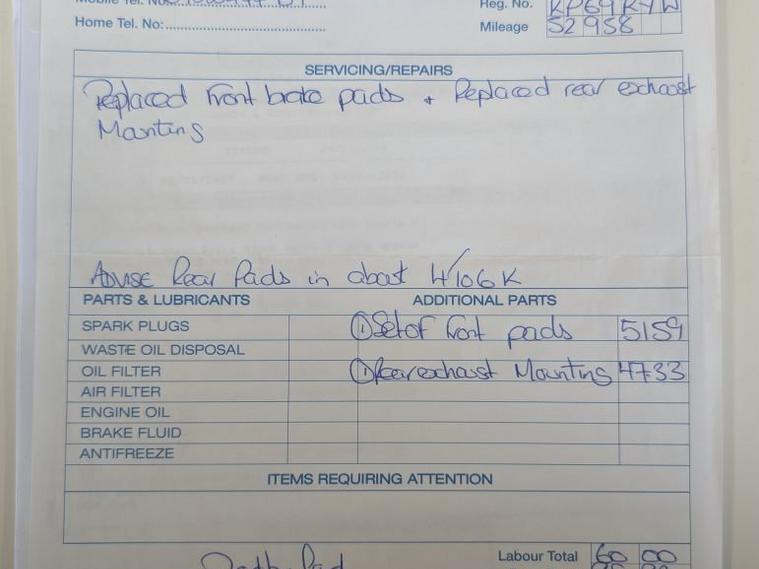 Mobile Tel. No:
Reg. No. KP69RYW
Home Tel. No:
Mileage 52958
SERVICING/REPAIRS
Replaced front brake pads + Replaced rear exhaust
Mounting
Advise Rear Pads in about 4/106K
PARTS & LUBRICANTS ADDITIONAL PARTS
SPARK PLUGS ① Set of front pads 51 59
WASTE OIL DISPOSAL
OIL FILTER ① Rear exhaust Mounting 47 33
AIR FILTER
ENGINE OIL
BRAKE FLUID
ANTIFREEZE
ITEMS REQUIRING ATTENTION
Labour Total 60 00